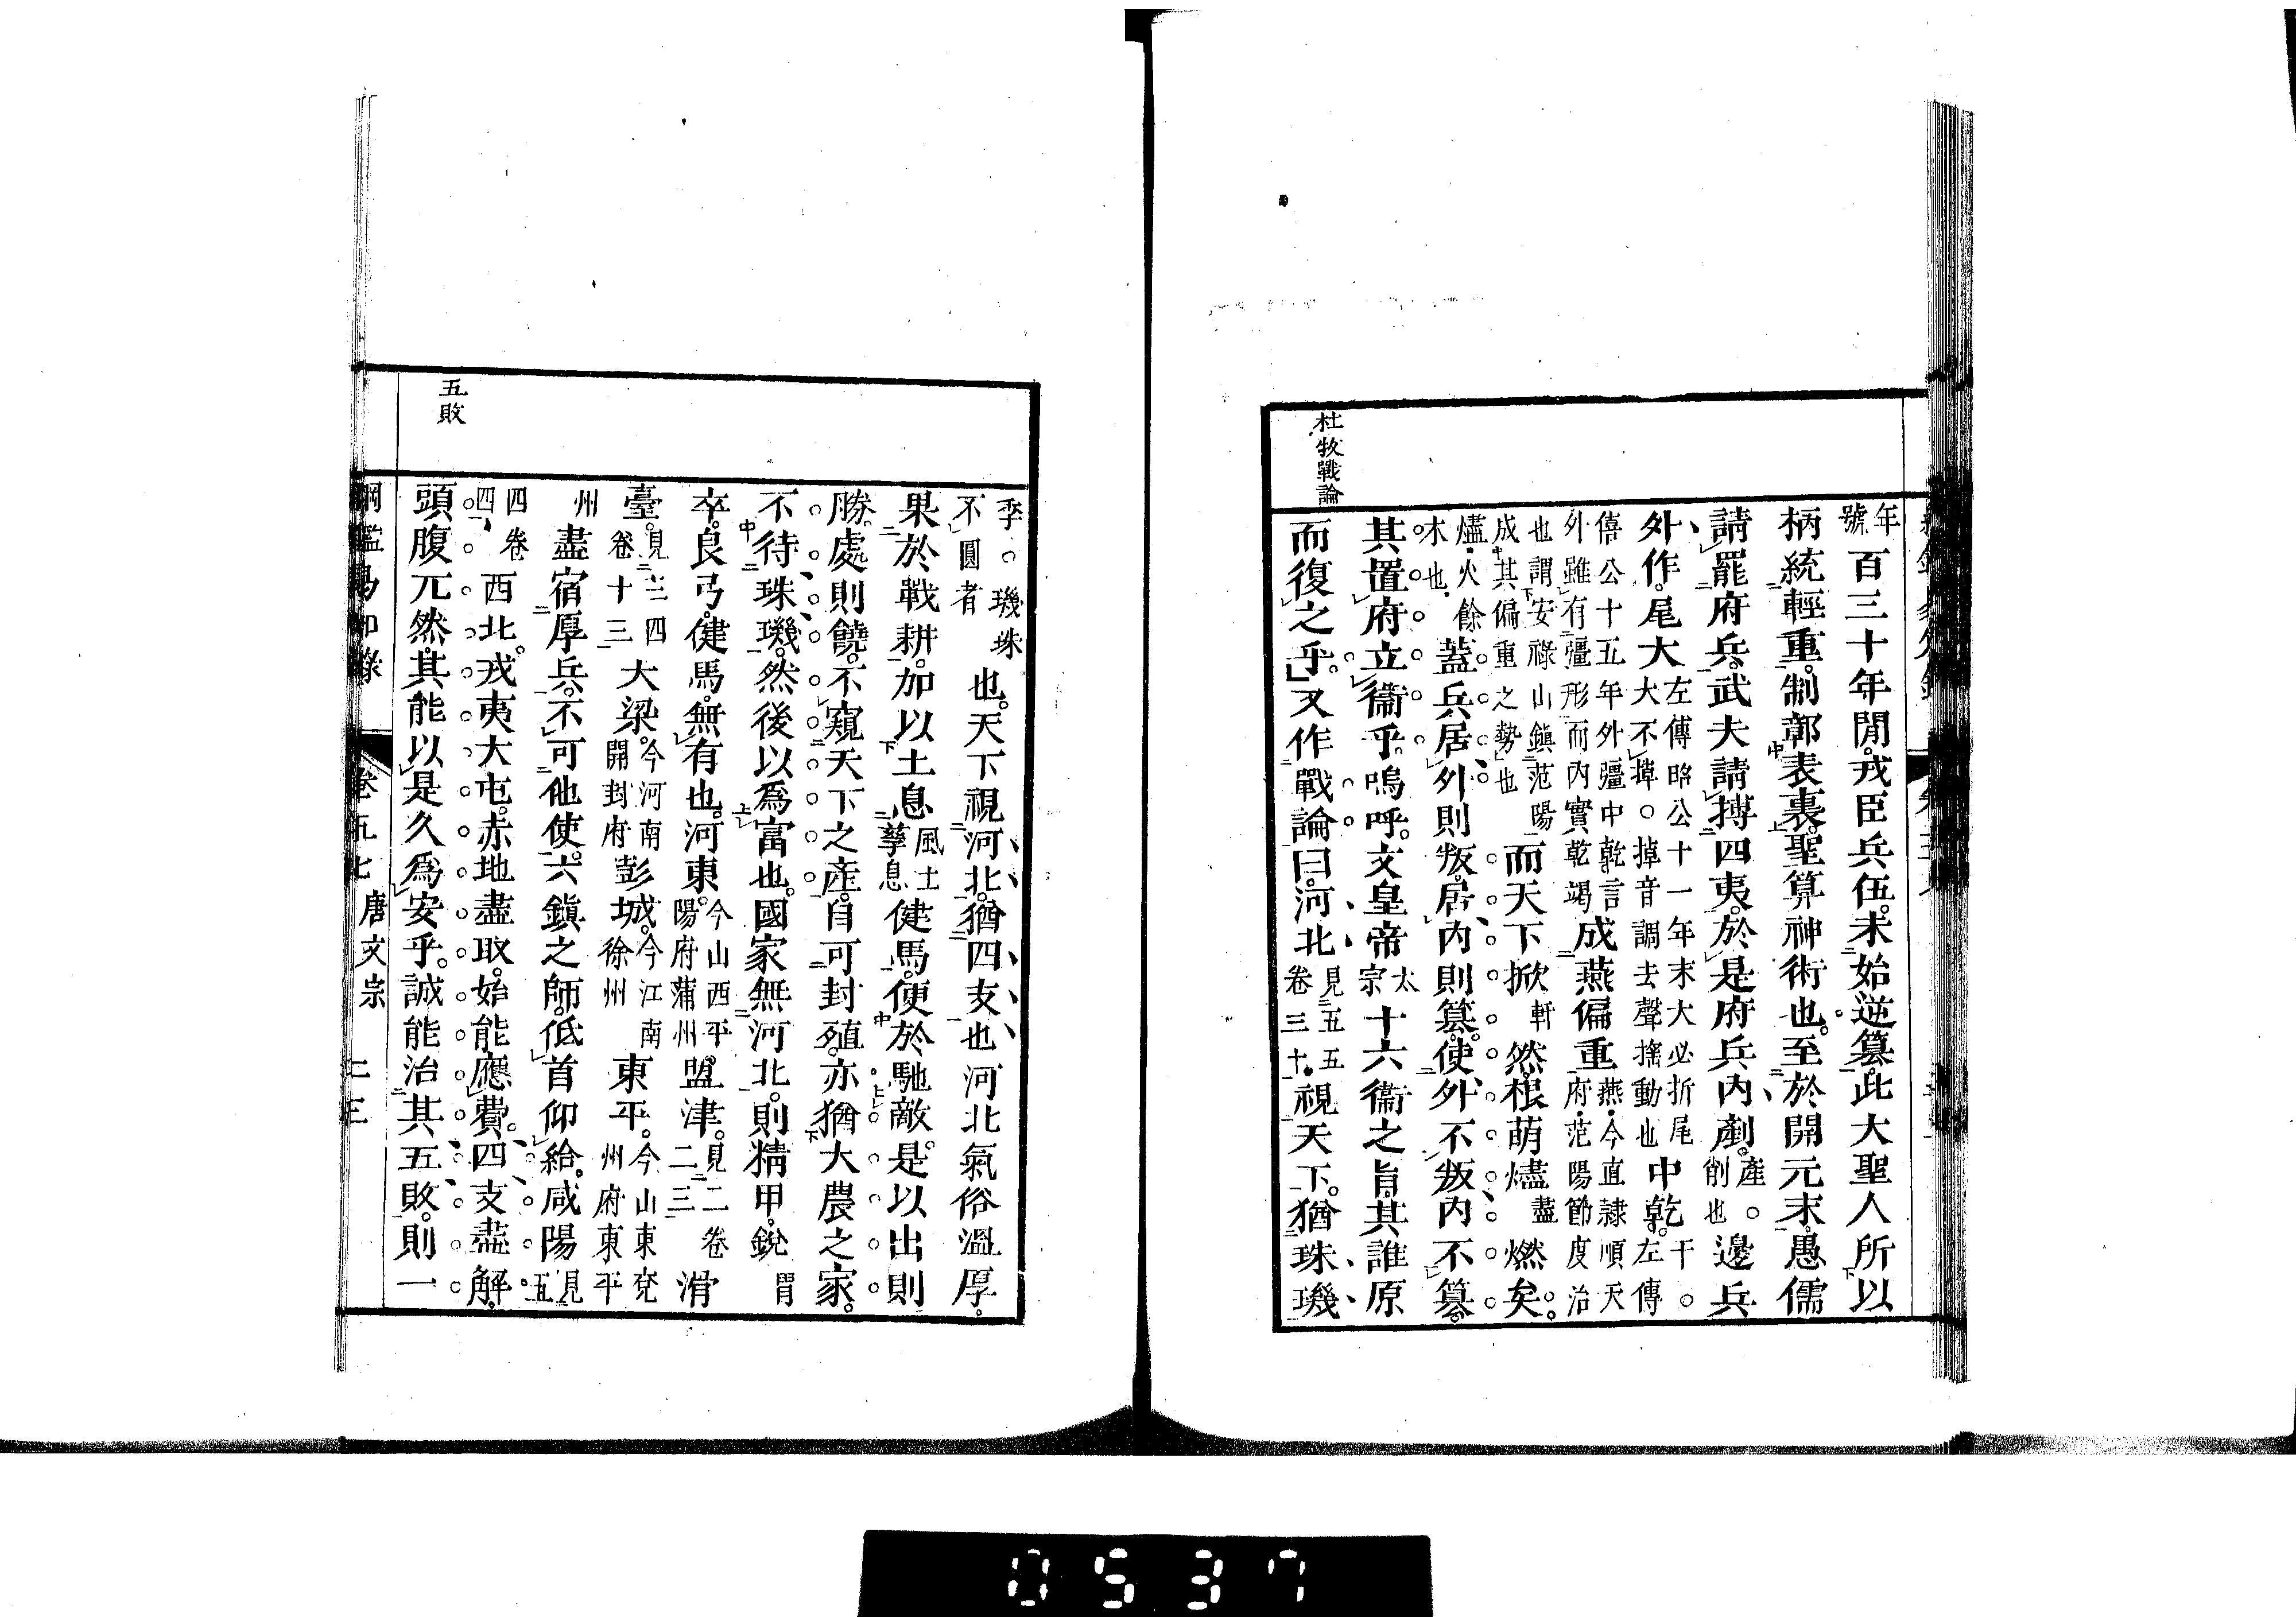 杜牧戰論
年號百三十年閒。戎臣兵伍。未始逆篡。此大聖人所以
柄統輕重。制鄣表裏。聖算神術也。至於開元末。愚儒
請罷府兵。武夫請搏四夷。於是府兵內剷。產。削也邊兵
外作。尾大左傳昭公十一年末大必折尾大不掉。掉音調去聲搖動也中乾。干。左傳
僖公十五年外彊中乾言外雖有彊形而內實乾竭成燕偏重燕今直隸順天府范陽節度治
也謂安祿山鎮范陽成其偏重之勢也而天下掀軒然。根萌燼盡燃矣。
燼火餘木也蓋兵居外則叛。居內則篡。使外不叛內不篡。
其置府立衞乎。嗚呼。文皇帝太宗十六衞之旨。其誰原
而復之乎。又作戰論曰。河北見五五卷三十視天下。猶珠璣
五敗
季。璣珠不圓者也。天下視河北。猶四支也河北氣俗溫厚。
果於戰耕。加以土息風土孳息健馬。便於馳敵。是以出則
勝。處則饒。不窺天下之產。自可封殖。亦猶大農之家。
不待珠璣。然後以爲富也。國家無河北。則精甲。銳胃
卒。良弓。健馬。無有也。河東。今山西平陽府蒲州盟津。見二卷二三滑
臺。見三四卷十三大梁。今河南開封府彭城。今江南徐州東平。今山東兗州府東平
州盡宿厚兵。不可他使。六鎮之師。低首仰給。咸陽見五
四卷四西北。戎夷大屯。赤地盡取。始能應費。四支盡解。
頭腹兀然。其能以是久爲安乎。誠能治其五敗。則一
綱鑑易知錄 卷五七 唐文宗